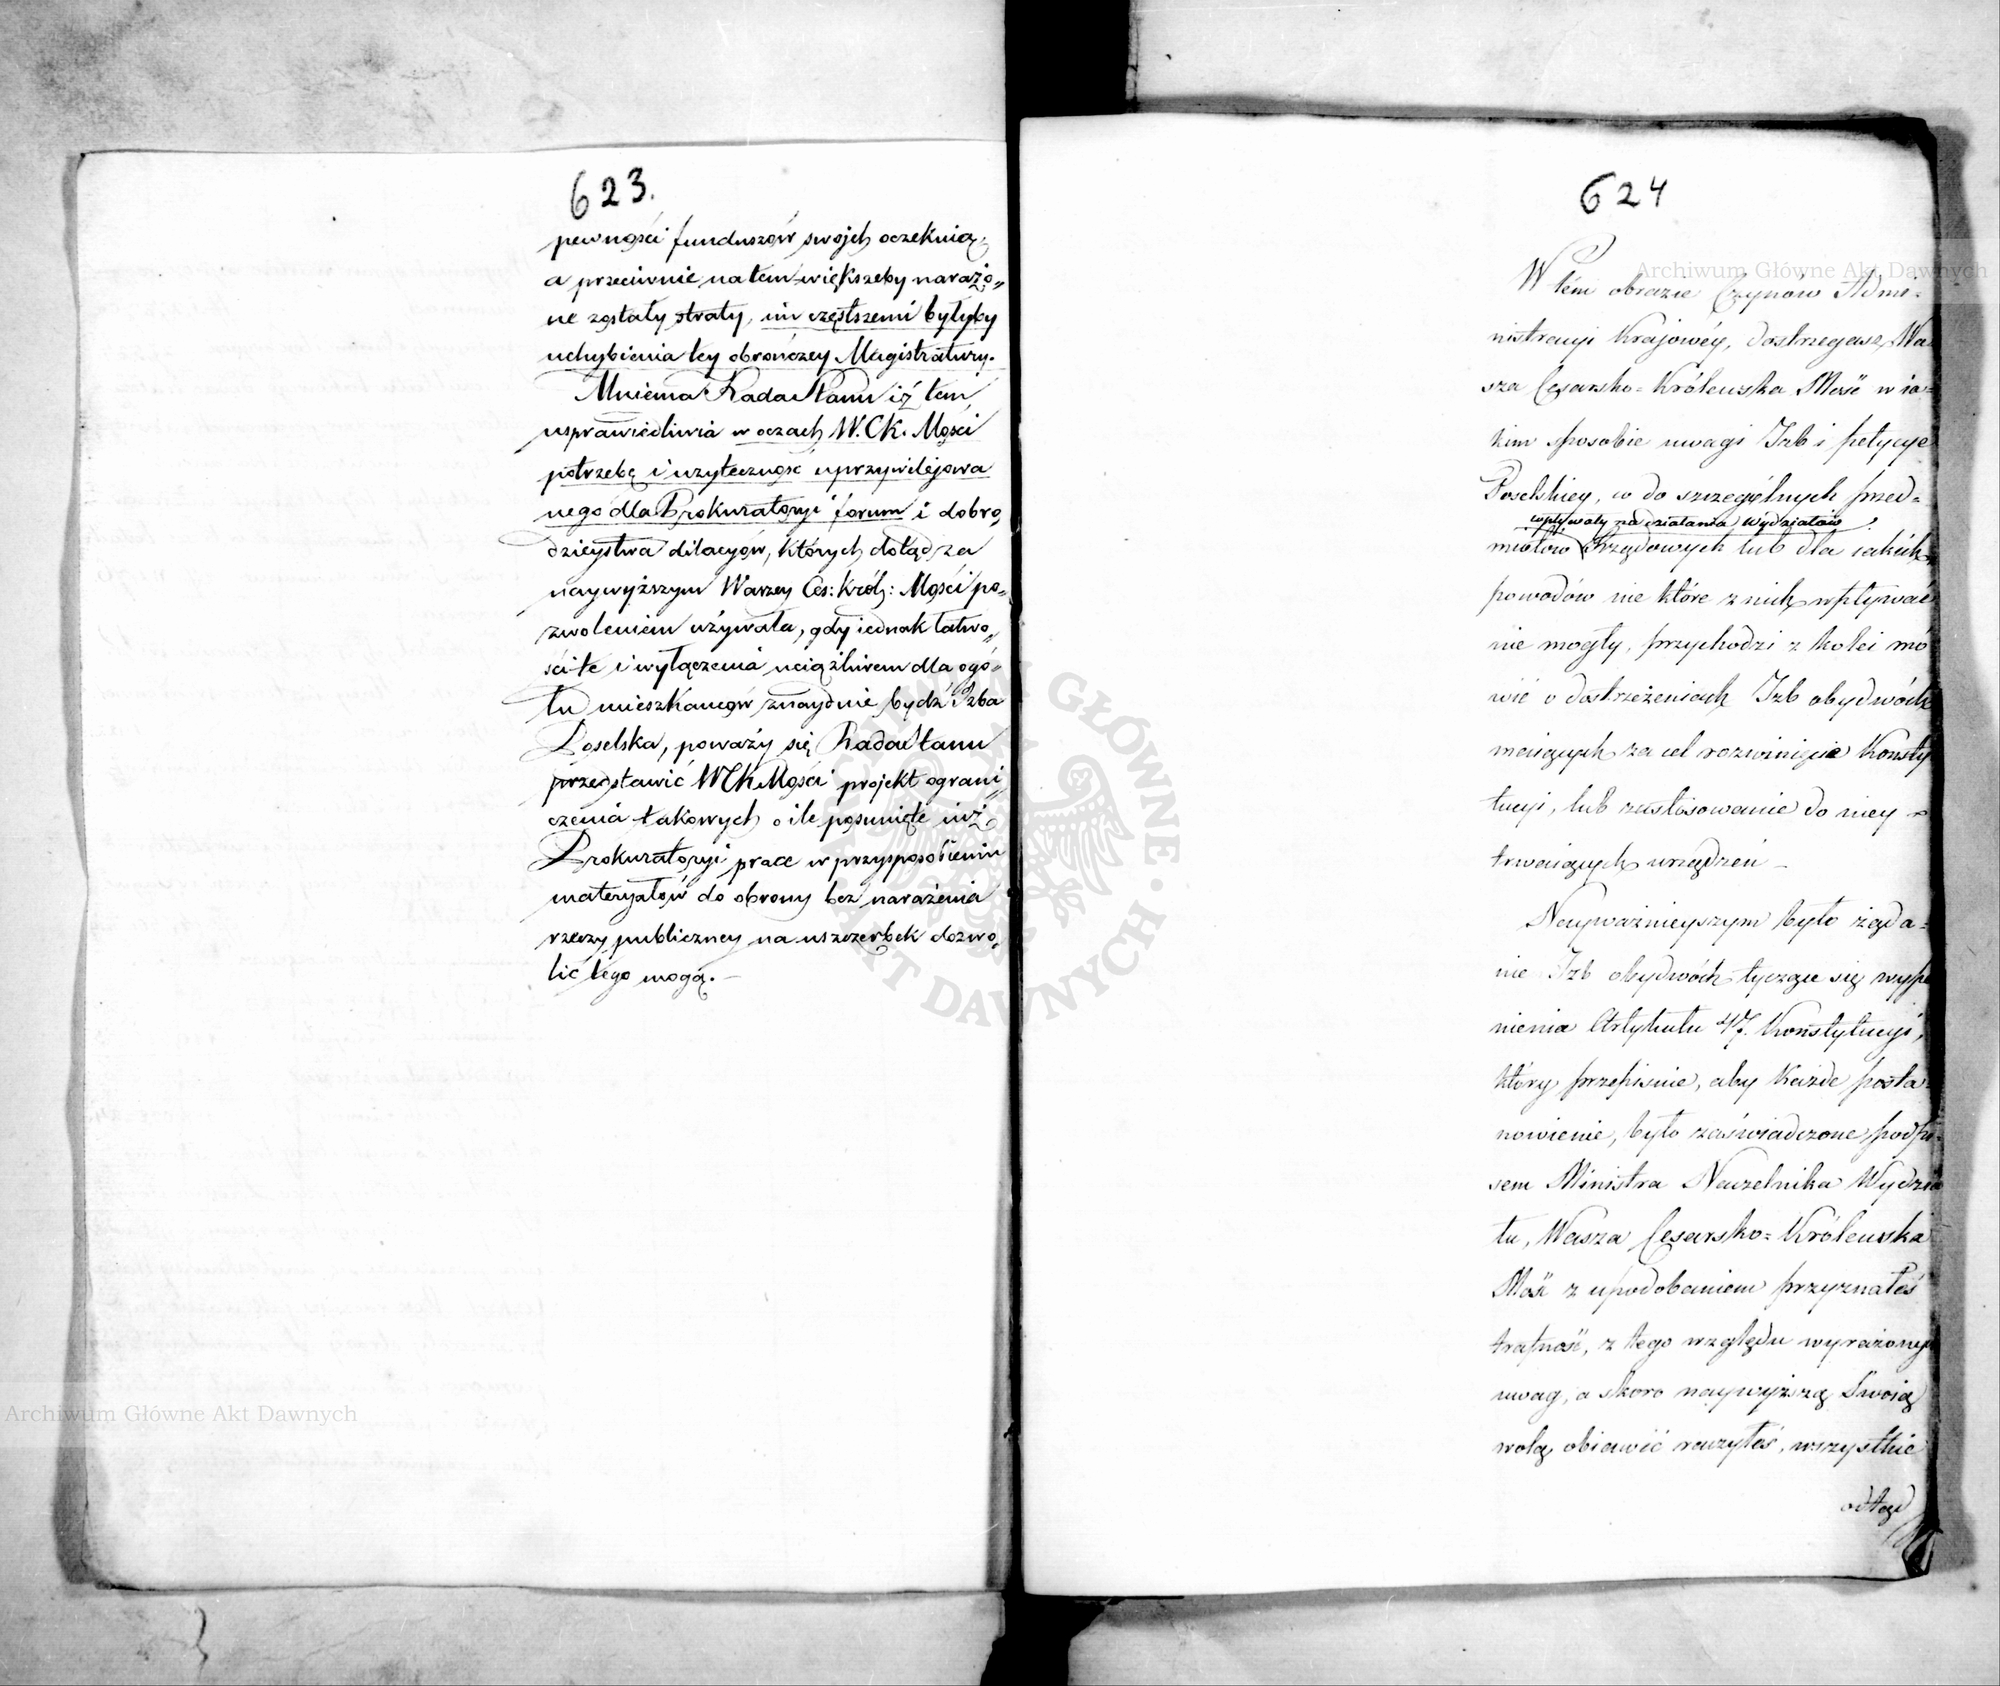 623.
pewności funduszów swojch oczekuią,
a przeciwnie na tem większeby narażo„
ne zostały straty, im częstszemi byłyby
uchybienia tey obrończey Magistratury.
Mniema Rada Stanu iż tem
usprawiedliwia w oczach W.CK. Mości
potrzebę i użyteczność uprzywilejowa
nego dla Prokuratoryi forum i dobro„
dzieystwa dilacyów, których dotąd za
naywyższym Waszey Ces: Król: Mości po„
zwoleniem używała, gdy iednak łatwo„
ści te i wyłączenia uciążliwem dla ogó„
łu mieszkanców znayduie bydź Izba
Poselska, poważy się Rada Stanu
przedstawić WCK Mości projekt ograni„
czenia takowych o ile posunięte iuż
Prokuratoryi prace w przysposobieniu
materyałów do obrony bez narażenia
rzeczy publiczney na uszczerbek dozwo„
lić tego mogą. –
624
W tém obrazie Czynów Admi-
nistracyi Krajowéy, dostrzegasz Wa
sza Cesarsko-Królewska Mość w ia-
kim sposobie uwagi Izb i petycye
Poselskiey, co do szczególnych przed-
wpływały na działania Wydziałów
miotów Rządowych lub dla iakich
powodów nie które z nich wpływać
nie mogły, przychodzi z kolei mó
wić o dostrzeżeniach Izb obydwóch
maiących za cel rozwinięcie Konsty
tucyi, lub zastósowanie do niey
trwaiących urządzeń –
Nayważnieyszym było żąda-
nie Izb obydwóch tyczące się wype
nienia Artykułu 47. Konstytucyi,
który przepisuie, aby każde posta-
nowienie, było zaświadczone podpi-
sem Ministra Naczelnika Wydzia
łu, Wasza Cesarsko-Królewska
Mość z upodobaniem przyznałeś
trafność, z tego względu wyrażonych
uwag, a skoro naywyższą Swoią
wolą obiawić raczyłeś, wszystkie
odtąd
Archiwum Główne Akt Dawnych
Archiwum Główne Akt Dawnych